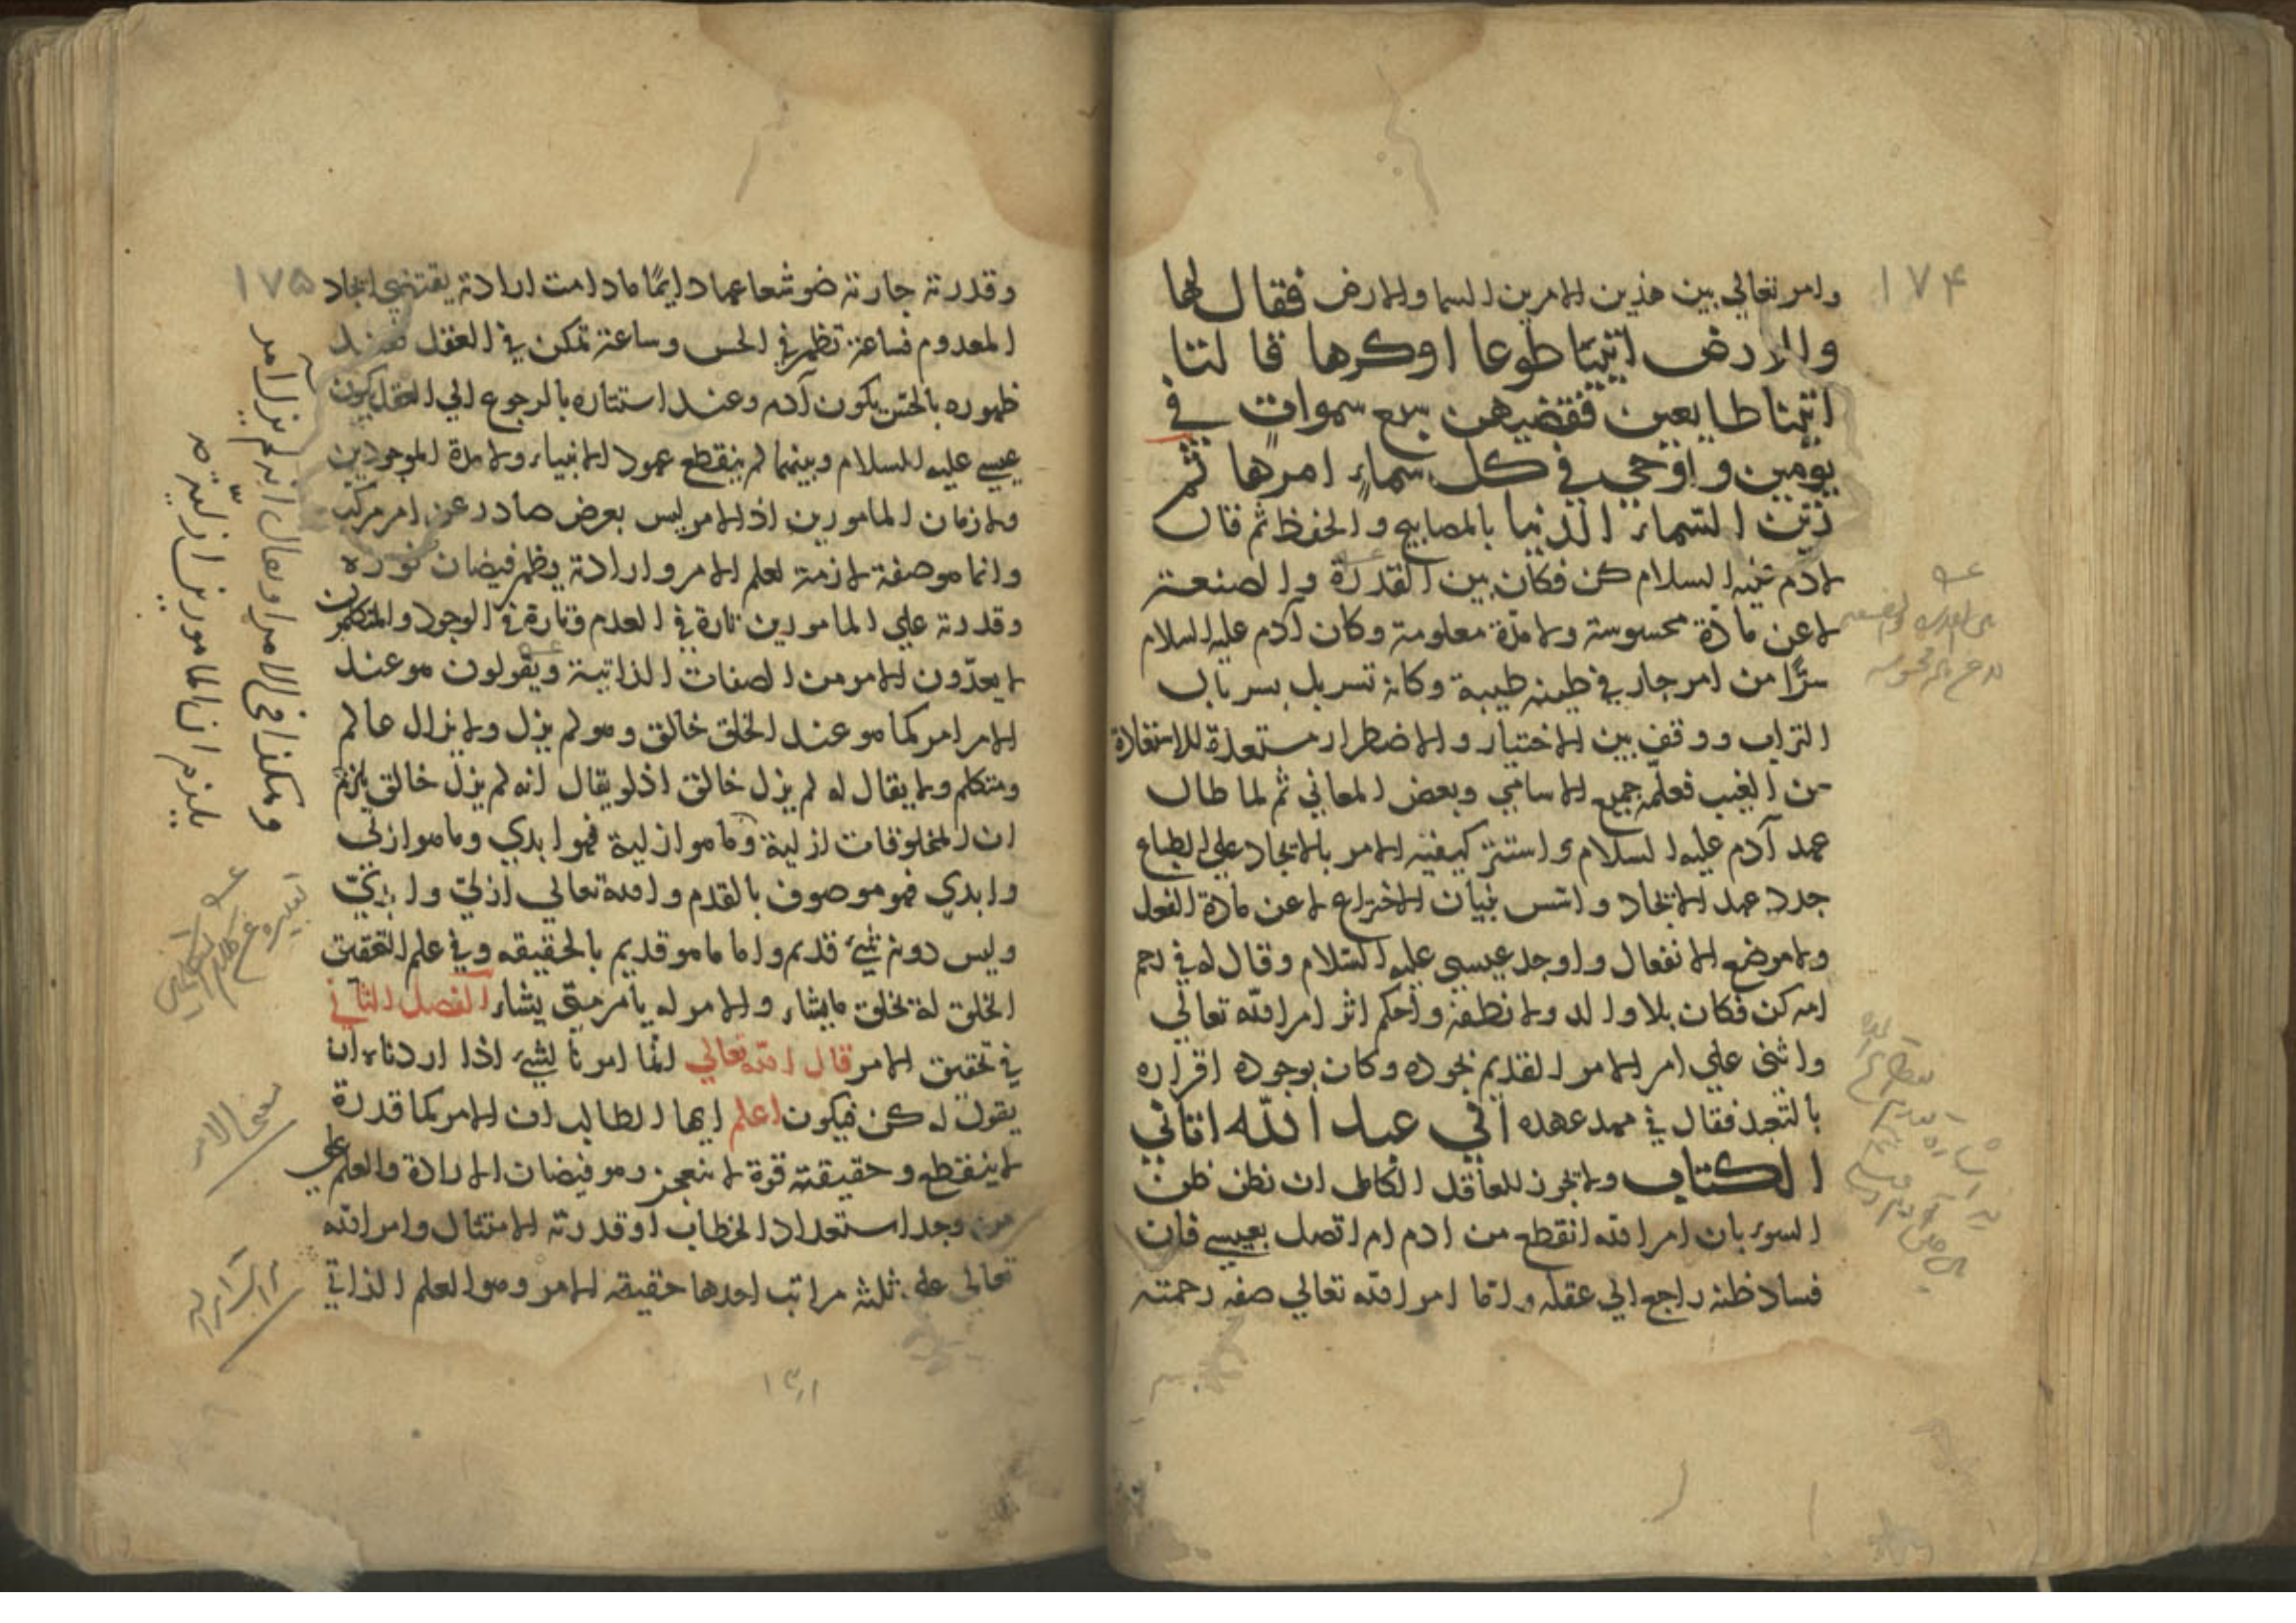 ۱۷۴
وامر تعالي بين هذين الامرين السما والارض فقال لها
وللارض ائتيا طوعا اوكرها قالتا
اتينا طايعين فقضيهن سبع سموات في
يومين واوحي في كل سماء امرها ثم
زين السماء الدنيا بالمصابيح والحفظ ثم قال
لادم عليه السلام كن فكان بين القدرة والصنعة
لا عن مادة محسوسة ولا مدة معلومة وكان آدم عليه السلام
سرًا من امر جار في طينه طيبة وكانه تسربل بسربال
التراب ووقف بين الاختيار والاضطرار مستعدة للاستفادة
من الغيب فعلّمه جميع الاسامي وبعض المعاني ثم لما طال
عهد آدم عليه السلام واستتر كيفيه الامر بالايجاد علي الطباع
جدد عهد الايجاد واسس بنيان الاختراع لا عن مادة الفعل
ولا موضع الانفعال واوجد عيسي عليه السلام وقال له في رحم
امه كن فكان بلا والد ولا نطفة واحكم اثر امر الله تعالي
واثني علي امر الامر القديم بجوده وكان بوجوده اقراره
بالتعبد فقال في مهد عهده اني عبد الله اتاني
الكتاب ولا يجوز للعاقل الكامل ان نظن ظن
السوء بان امر الله انقطع من ادم ام اتصل بعيسي فان
فساد ظنه راجع الي عقله واما امر الله تعالي صفه رحمته
۱۷۵
وقدرته جارية ضو شعاعها دايمًا مادامت ارادته يقتضي ايجاد
المعدوم فساعة تظهر في الحس وساعة تمكن في العقل فعند
ظهوره بالحس يكون آدم وعند استتاره بالرجوع الي العقل يكون
عيسي عليه السلام وبينهما لم ينقطع عهود الانبياء ولا مدة الموجودين
ولا زمان المامورين اذ الامر ليس بعرض صادر عن امر مركب
وانما هو صفة لازمة لعلم الامر وارادته يظهر فيضان نوره
وقدرته علي المامورين تارة في العدم وتارة في الوجود والمتكلمون
لا يعدّون الامر من الصفات الذاتية ويقولون هو عند
الامر امر كما هو عند الخلق خالق وهو لم يزل ولا يزال عالم
ومتكلم ولا يقال له لم يزل خالق اذ لو يقال انه لم يزل خالق يلزم
ان المخلوقات ازلية وما هو ازلية فهو ابدي وما هو ازلي
وابدي فهو موصوف بالقدم والله تعالي ازليّ وابديّ
وليس دونه شيء قديم واما ما هو قديم بالحقيقه وفي علم التحقيق
الخلق له يخلق ما يشاء والامر له يامر متي يشاء الفصل الثاني
في تحقيق الامر قال الله تعالي انما امرنا لشيء اذا اردناه ان
يقول له كن فيكون اعلم ايها الطالب ان الامر كما قدرة
لا ينقطع وحقيقته قوة لا ينعجز وهو فيضان الارادة والعلم علي
من وجد استعداد الخطاب او قدرته الامتثال وامر الله
تعالى علي ثلثه مراتب احدها حقيقه الامر وهو العلم الذاتي
وهكذا في الامر لو يقال انه لم يزل آمر
يلزم ان المامورين ازلية
معني الامر